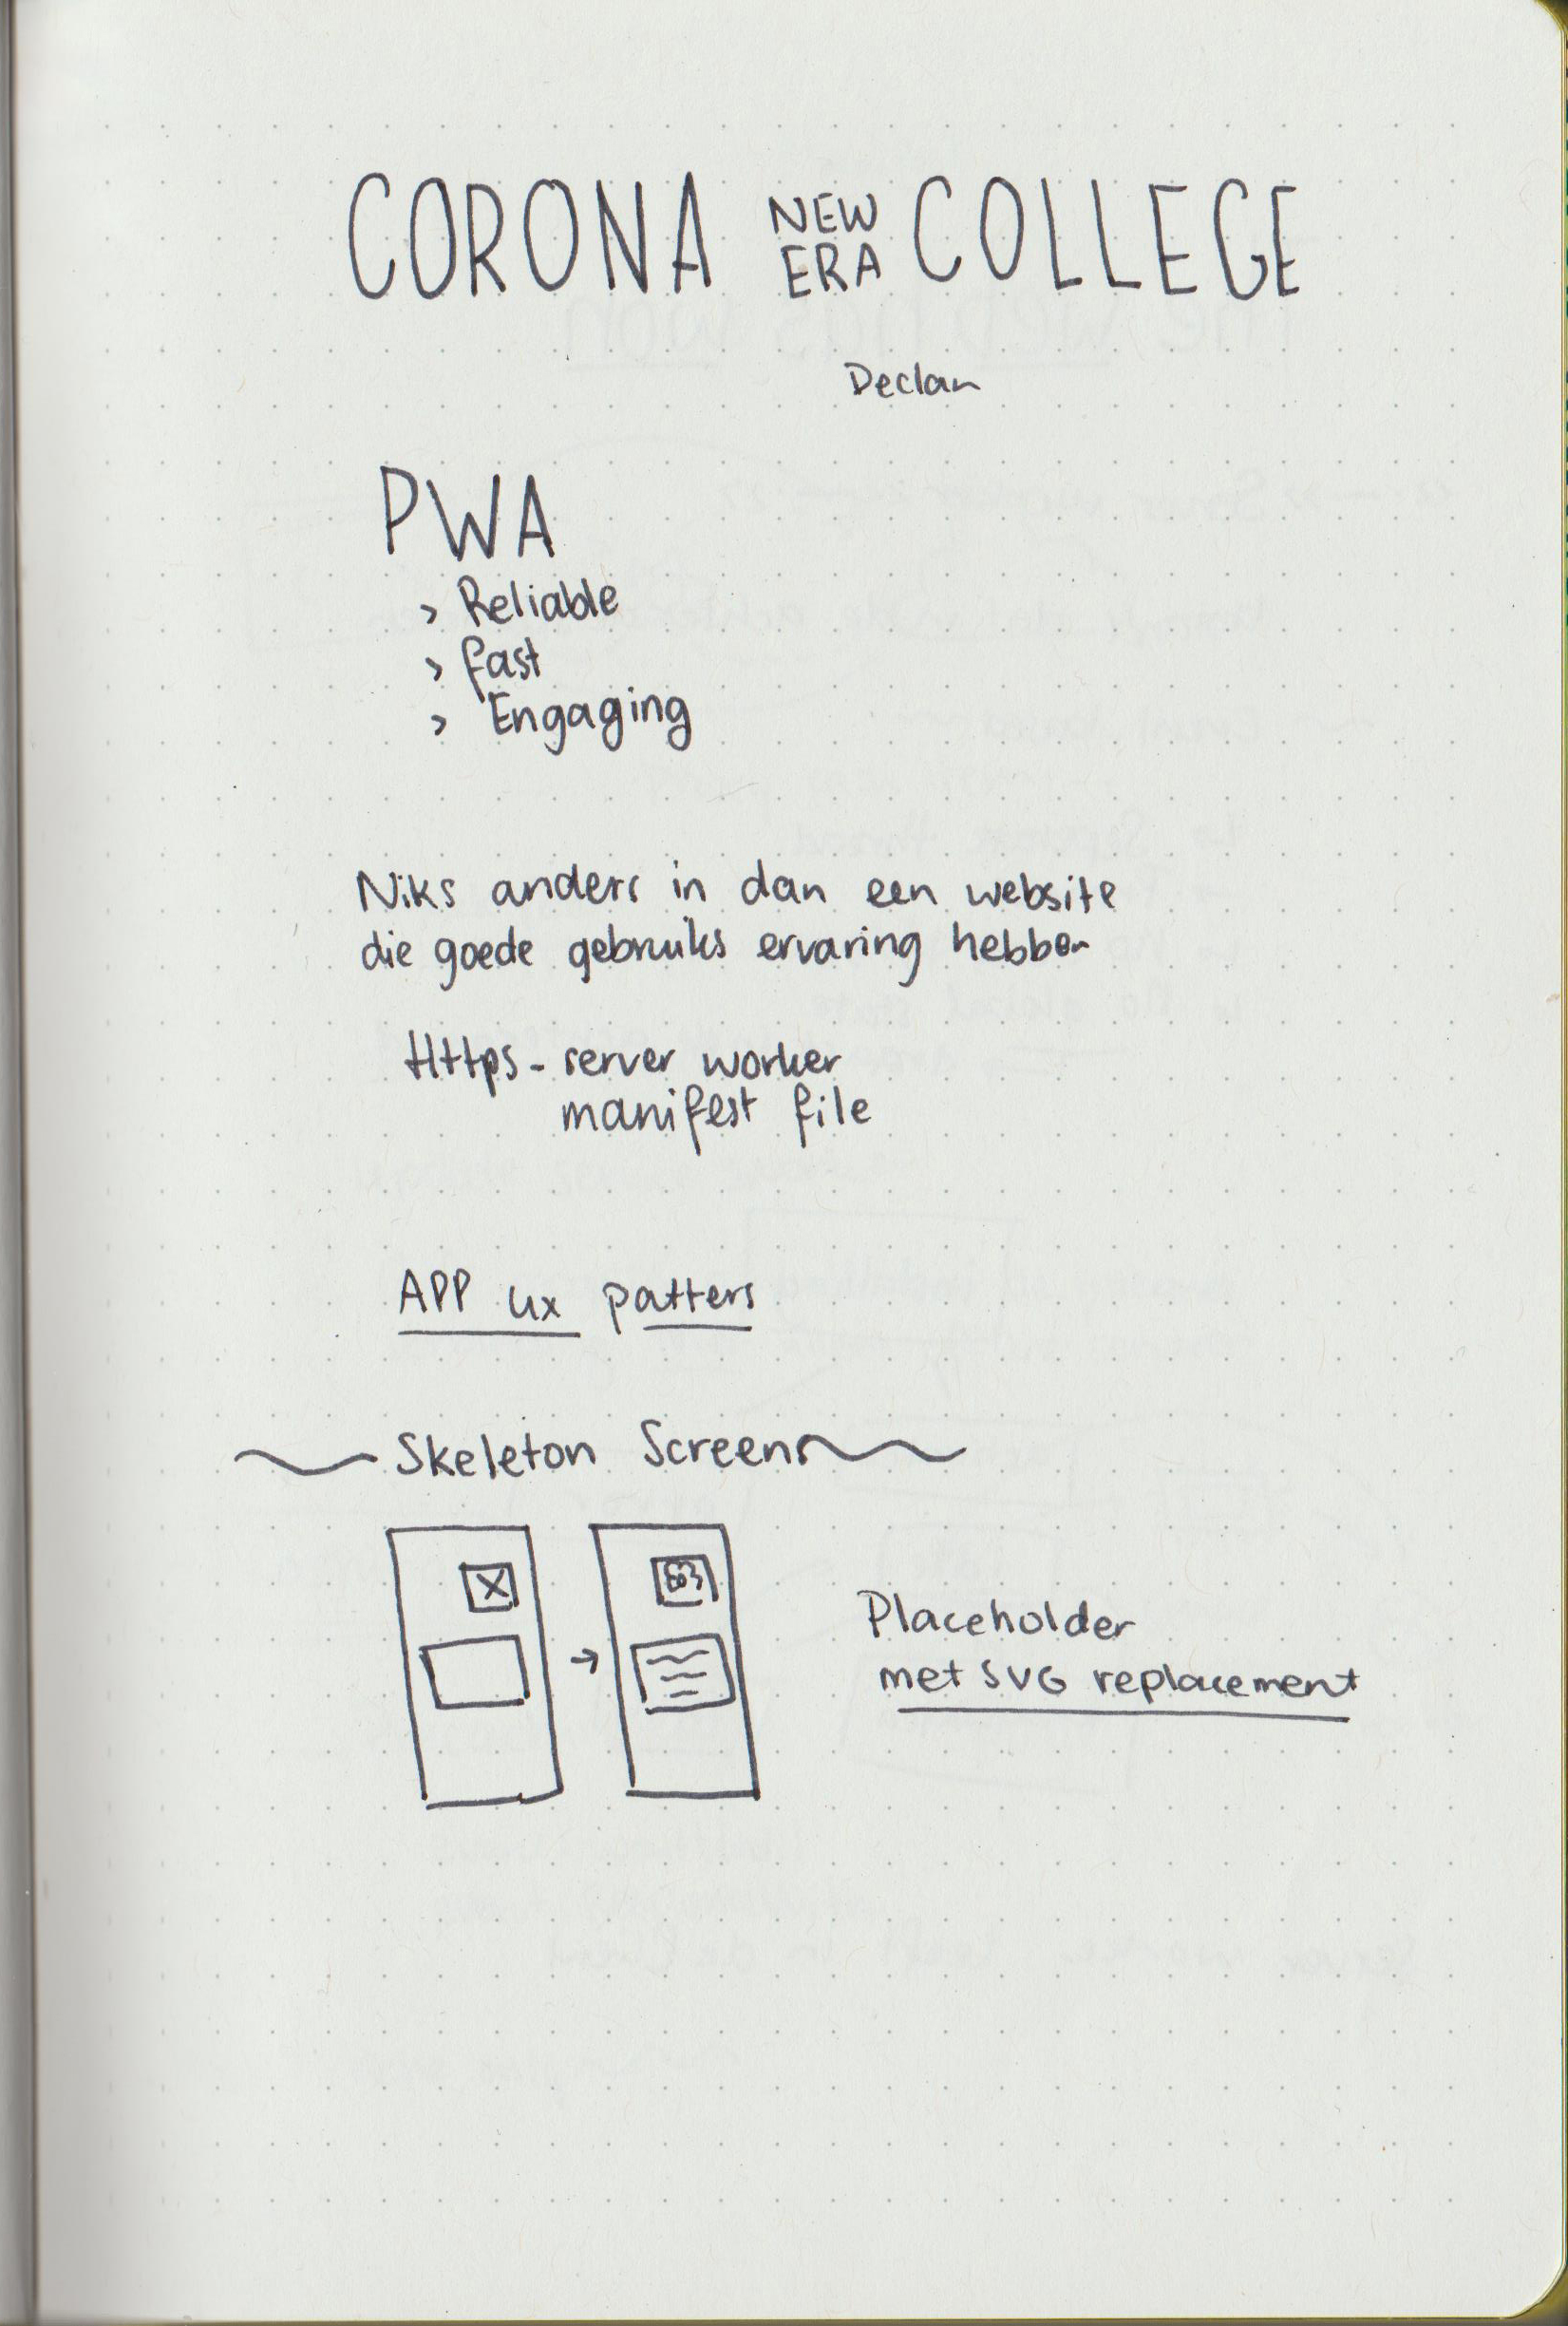 CORONA NEW ERA COLLEGE
Declan
PWA
> Reliable
> fast
> Engaging
Niks anders in dan een website
die goede gebruiks ervaring hebben
Https - server worker
manifest file
APP ux patters
Skeleton Screens
Placeholder
met SVG replacement